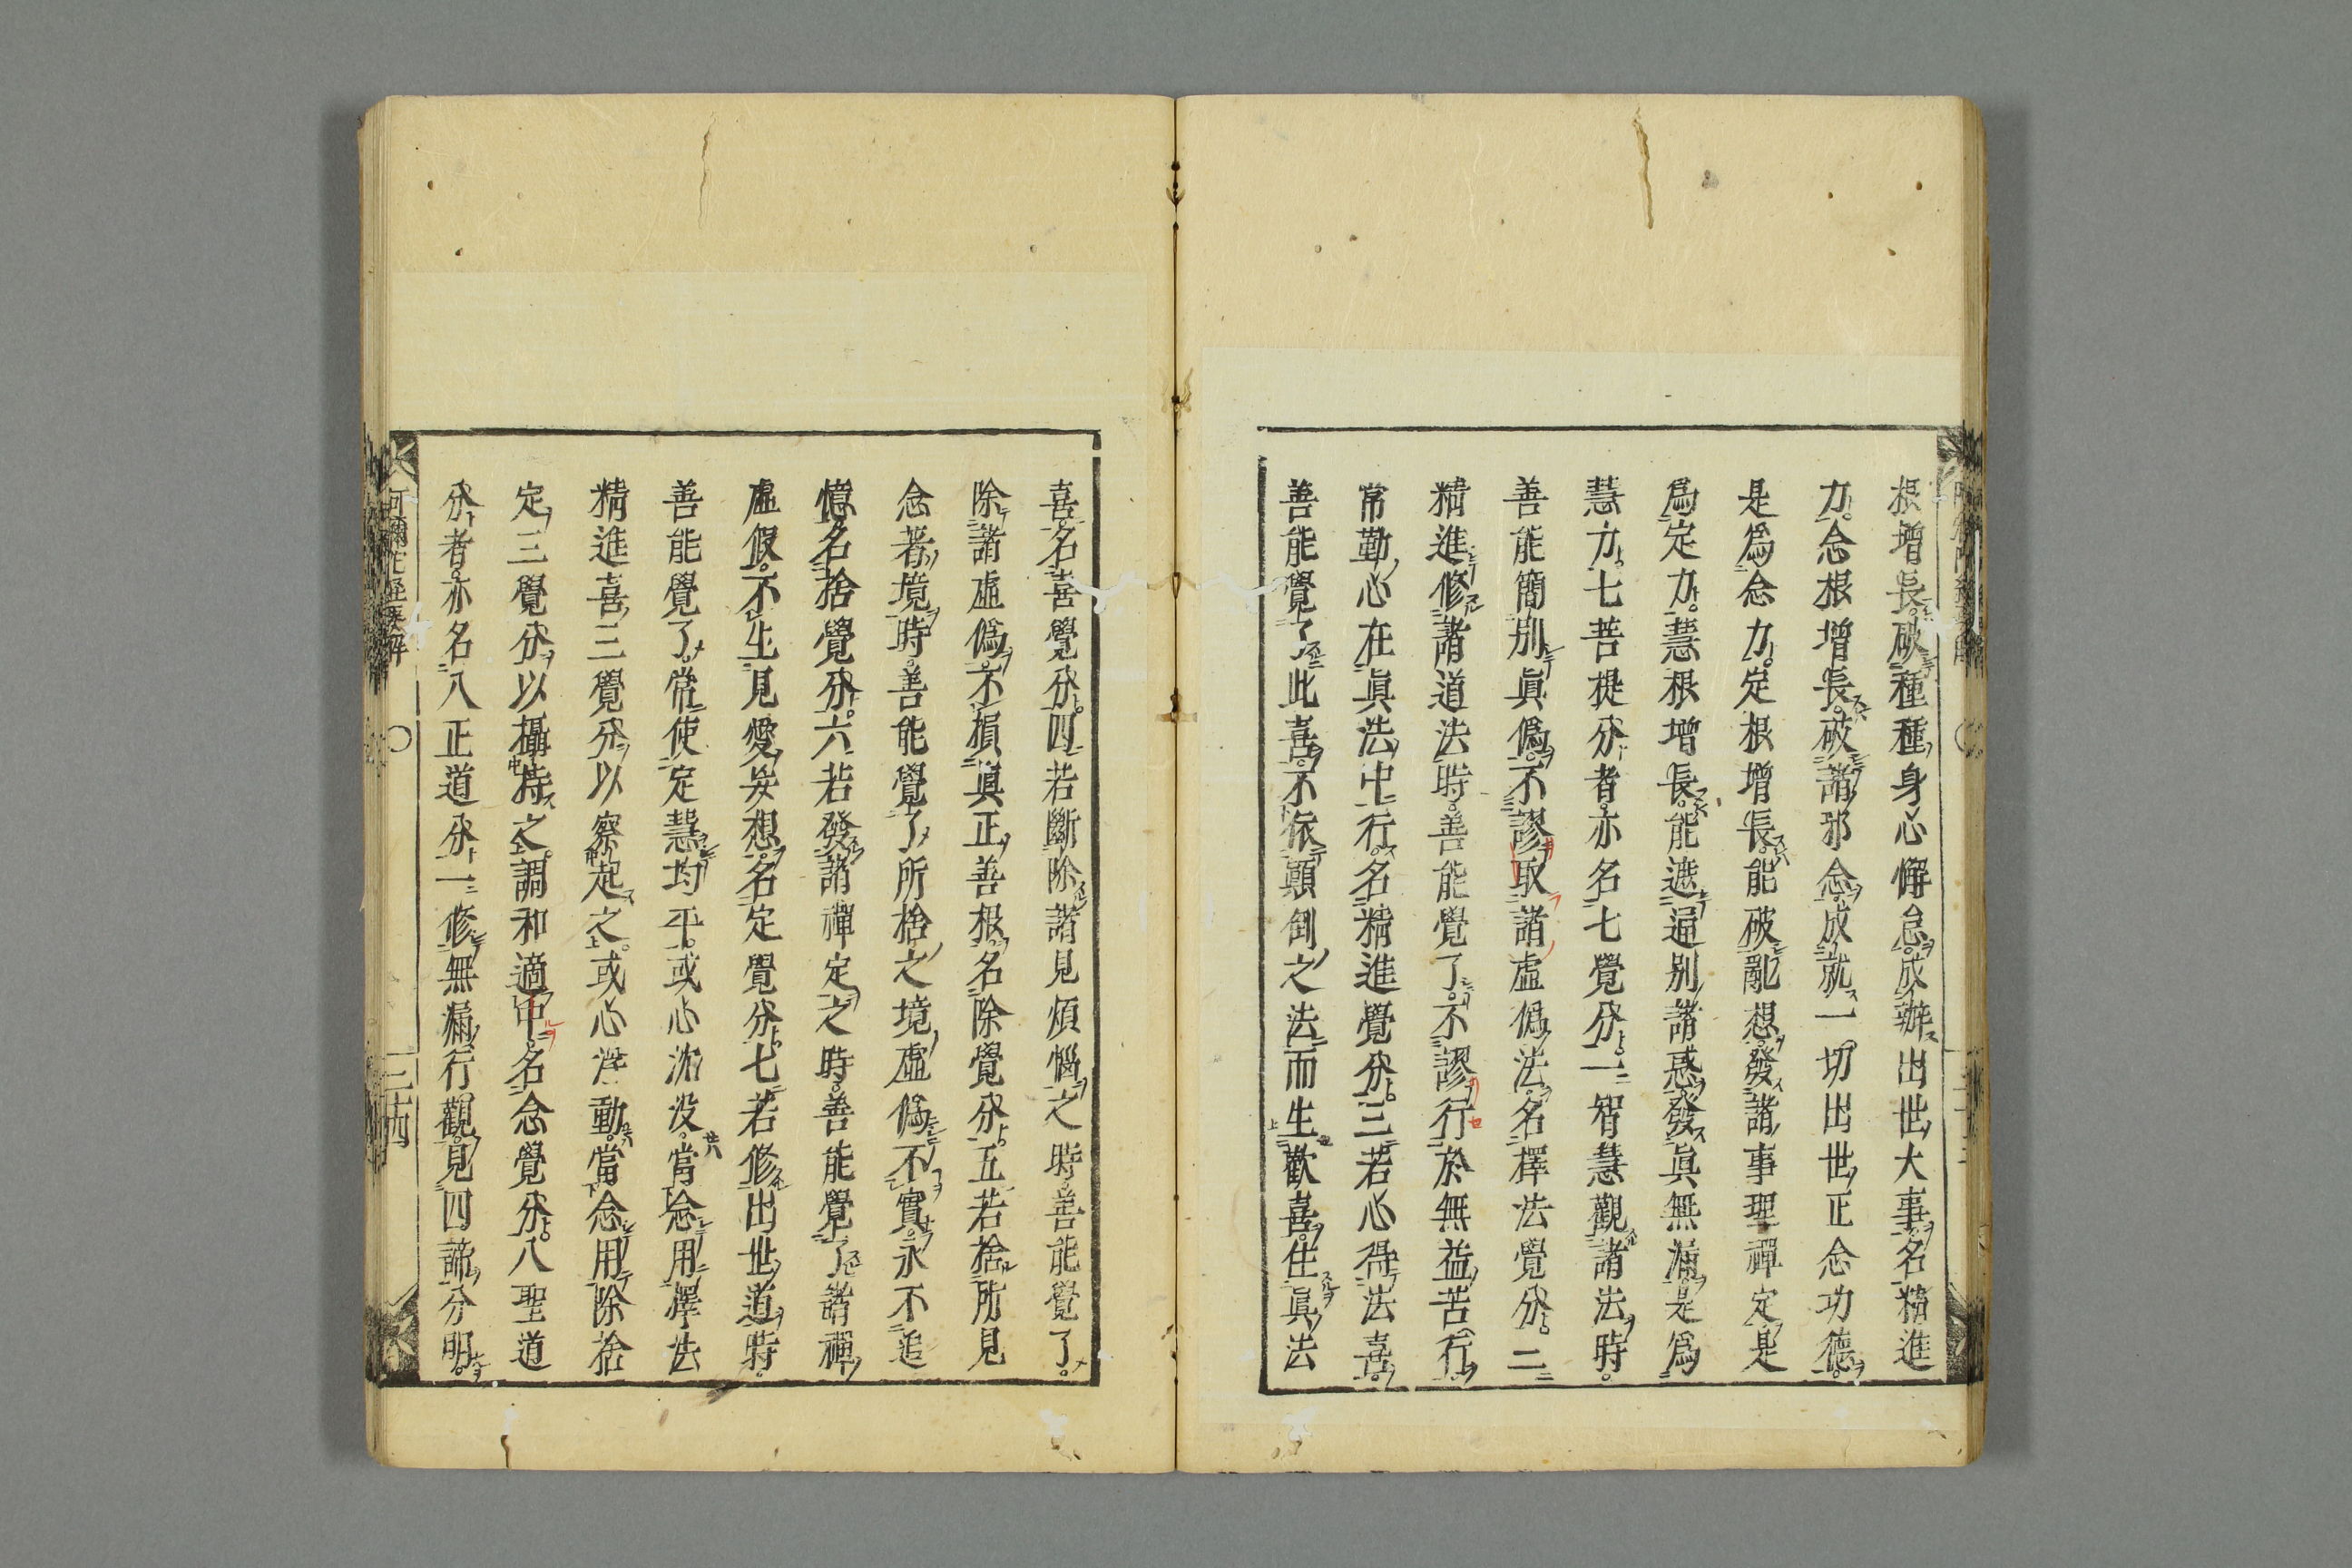 根增長破種種身心懈怠成辦出世大事名精進
力念根增長破諸邪念成就一切出世正念功德
是爲念力定根增長能破亂想發諸事理禪定是
爲定力慧根增長能遮逼別諸惑發眞無漏是爲
慧力七菩提分者亦名七覺分一智慧觀諸法時
善能簡別眞僞不謬取諸虛僞法名擇法覺分二
精進修諸道法時善能覺了不謬行於無益苦行
常勤心在眞法中行名精進覺分三若心得法喜
善能覺了此喜不依顚倒之法而生歡喜住眞法
喜名喜覺分四若斷除諸見煩惱之時善能覺了
除諸虛僞不損眞正善根名除覺分五若捨所見
念著境時善能覺了所捨之境虛僞不實永不追
憶名捨覺分六若發諸禪定之時善能覺了諸禪
虛假不生見愛妄想名定覺分七若修出世道時
善能覺了常使定慧均平或心沈没當念用擇法
精進喜三覺分以察起之或心浮動當念用除捨
定三覺分以攝持之調和適中名念覺分八聖道
分者亦名八正道分一修無漏行觀見四諦分明
阿彌陀經要解
三十四